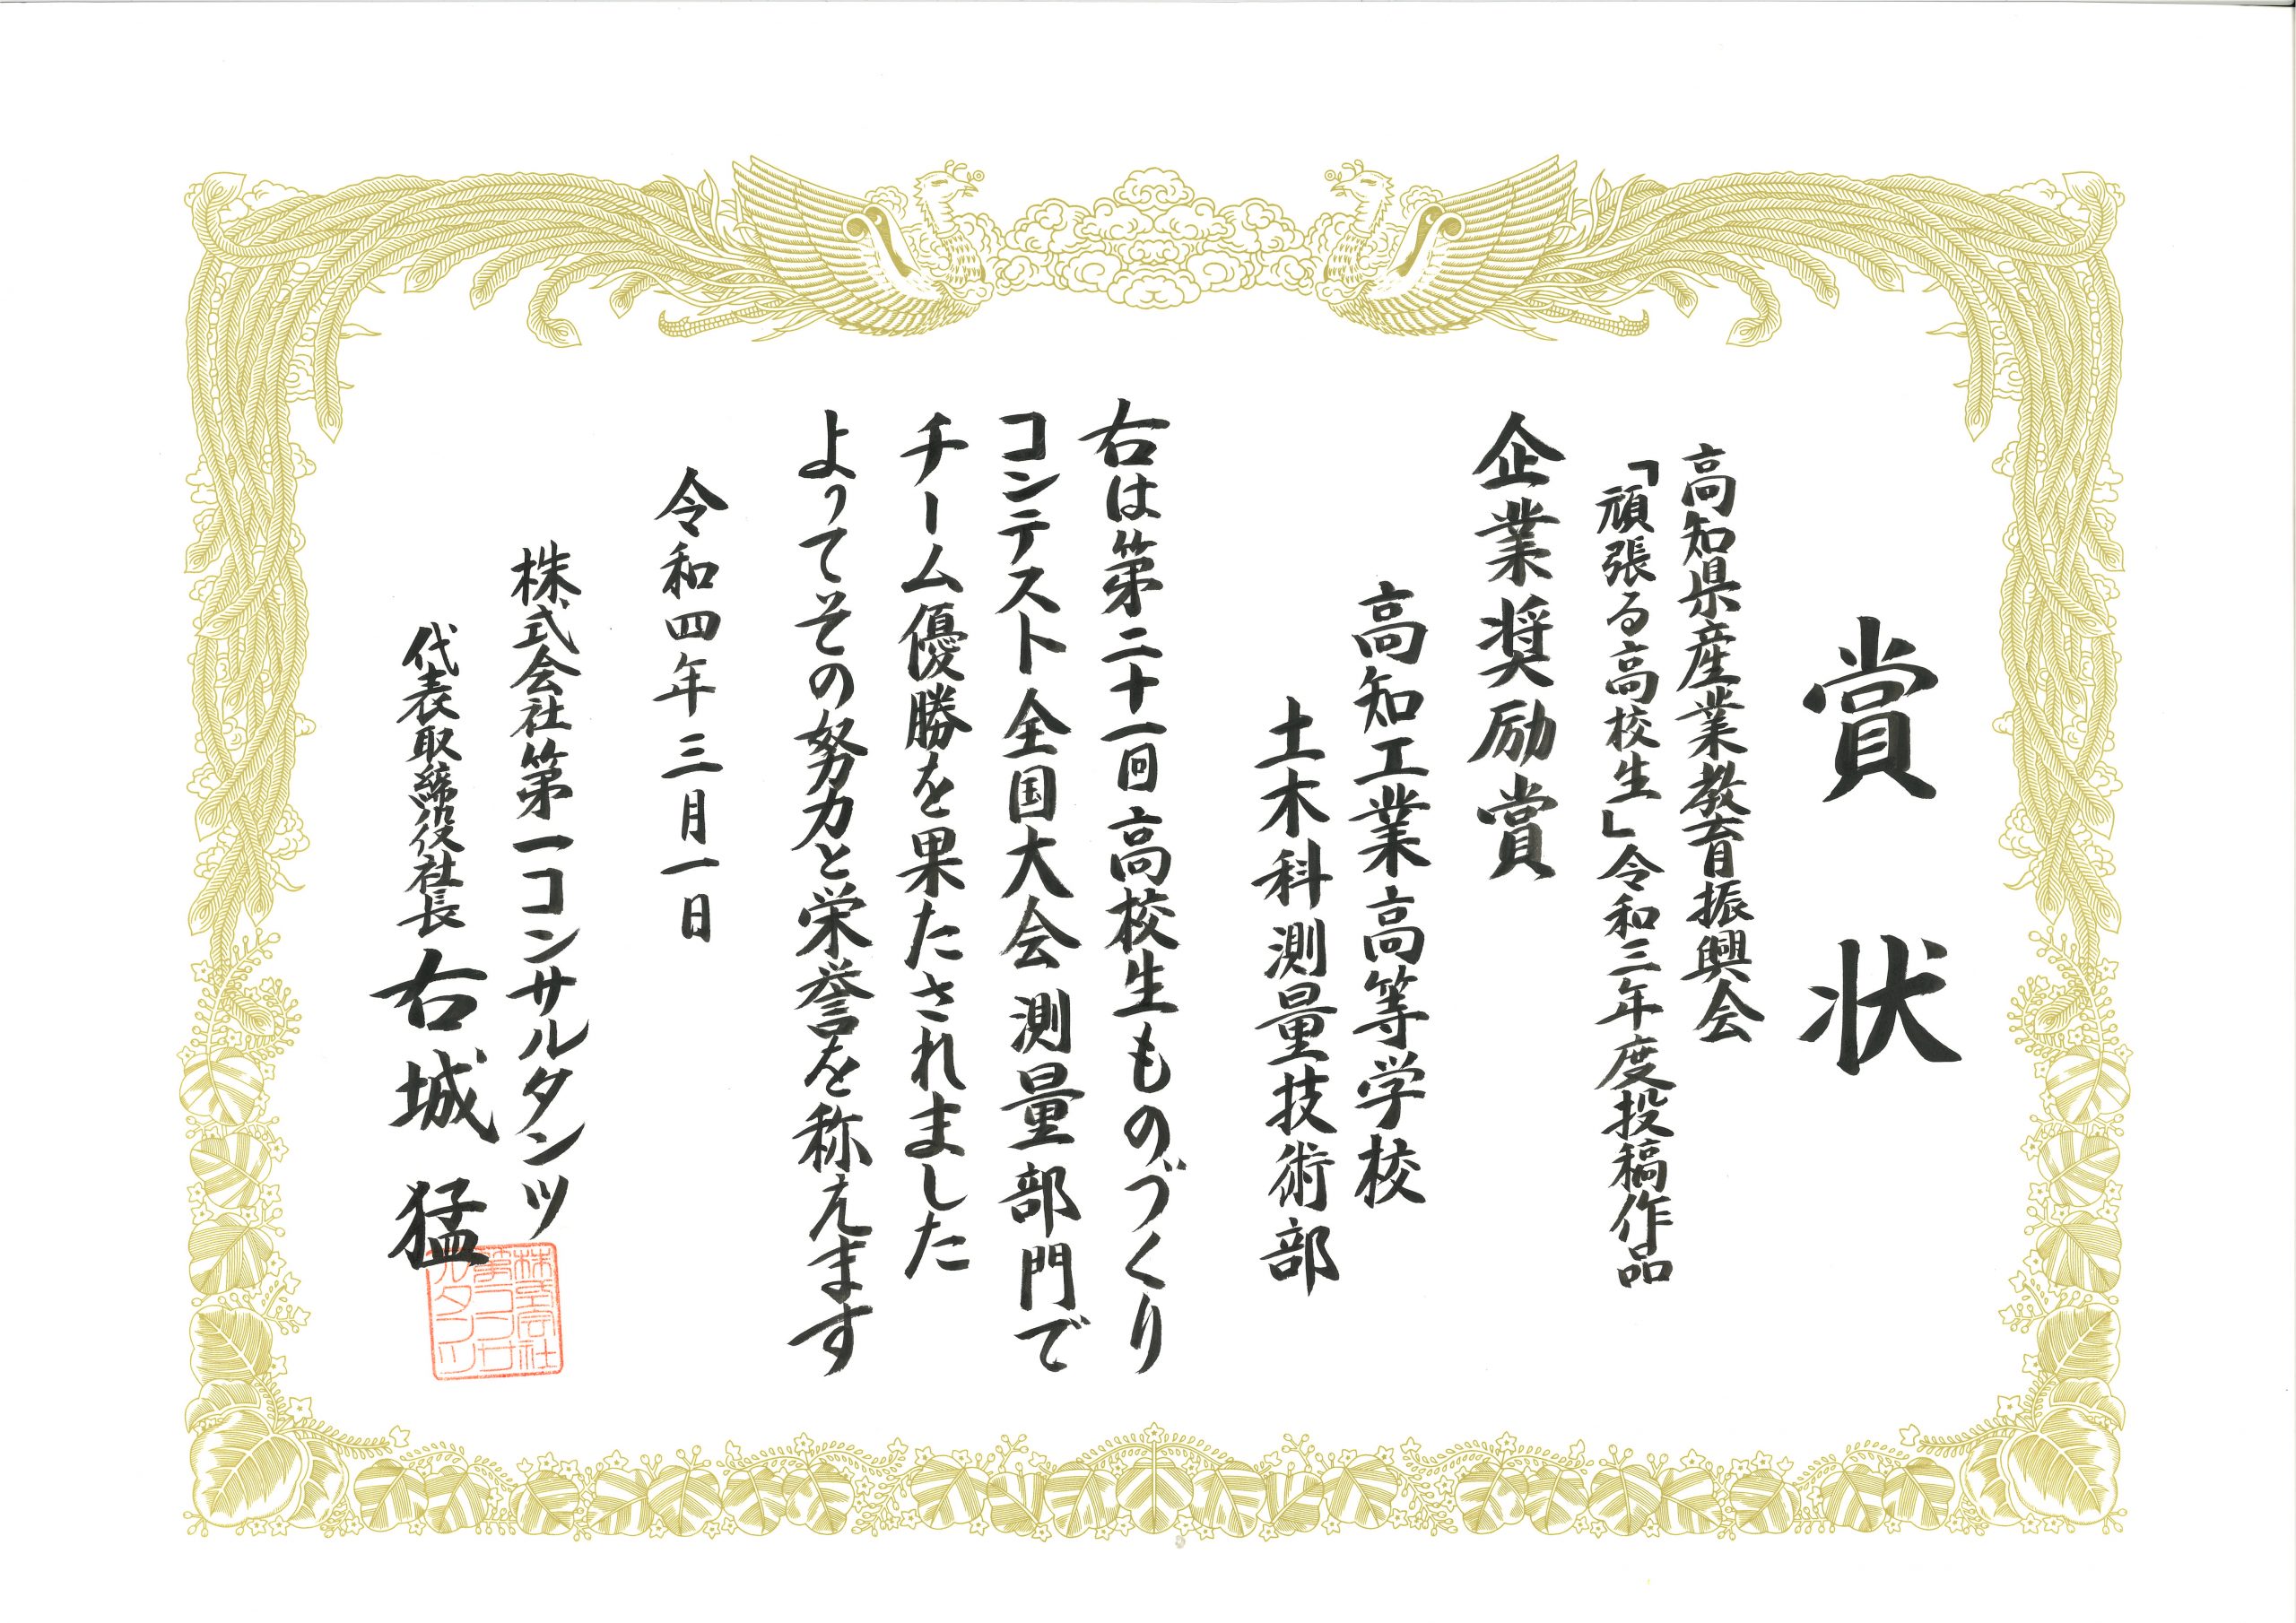 賞状
高知県産業教育振興会
「頑張る高校生」令和三年度投稿作品
企業奨励賞
高知工業高等学校
土木科測量技術部
右は第二十一回高校生ものづくり
コンテスト全国大会測量部門で
チーム優勝を果たされました
よってその努力と栄誉を称えます
令和四年三月一日
株式会社第一コンサルタンツ
代表取締役社長 右城 猛
株式会社
第一コンサ
ルタンツ